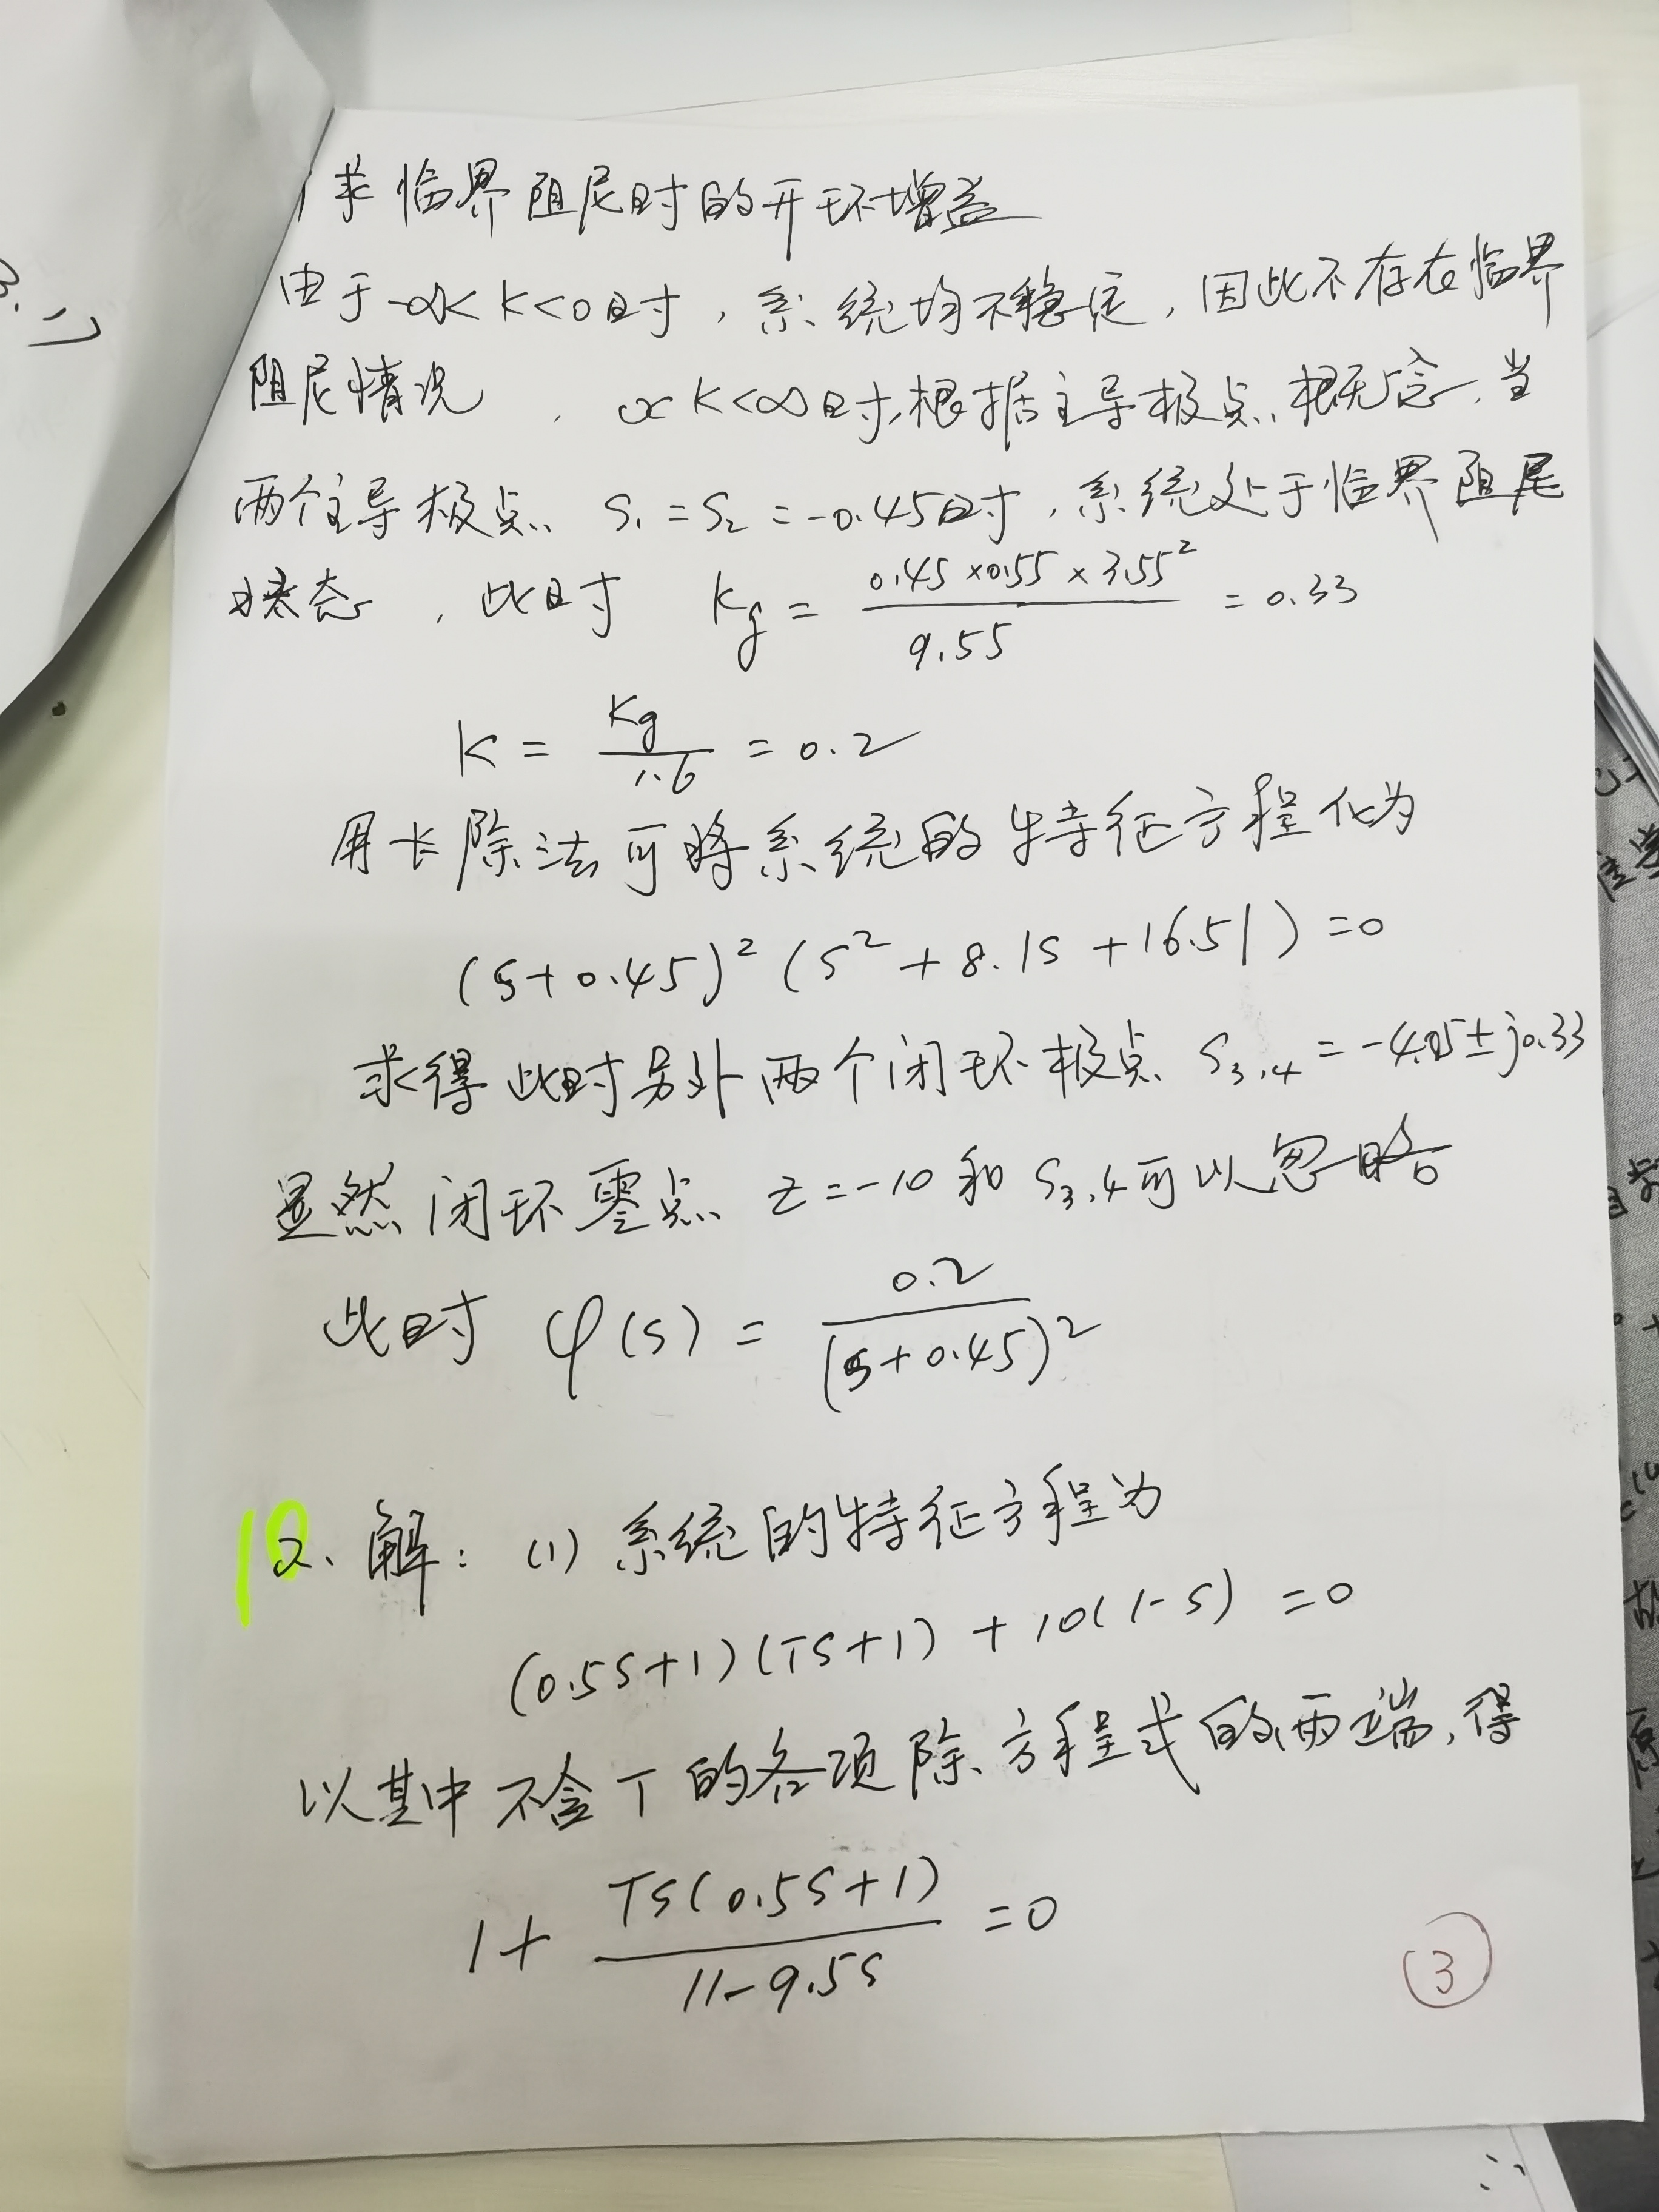 求临界阻尼时的开环增益
由于-∞<K<0时,系统均不稳定,因此不存在临界
阻尼情况,0<K<∞时,根据主导极点概念,当
两个主导极点 S₁=S₂=-0.45时,系统处于临界阻尼
状态,此时 Kg = (0.45×0.55×3.55²)/9.55 = 0.33
K = Kg/1.6 = 0.2
用长除法可将系统的特征方程化为
(S+0.45)²(S²+8.1S+16.51)=0
求得此时另外两个闭环极点 S₃,₄=-4.05±j0.33
显然闭环零点 Z=-10和 S₃,₄可以忽略
此时 φ(S) = 0.2/(S+0.45)²
12、解:(1) 系统的特征方程为
(0.5S+1)(TS+1)+10(1-S)=0
以其中不含T的各项除方程式的两端,得
1+ TS(0.5S+1)/(11-9.5S) =0
3